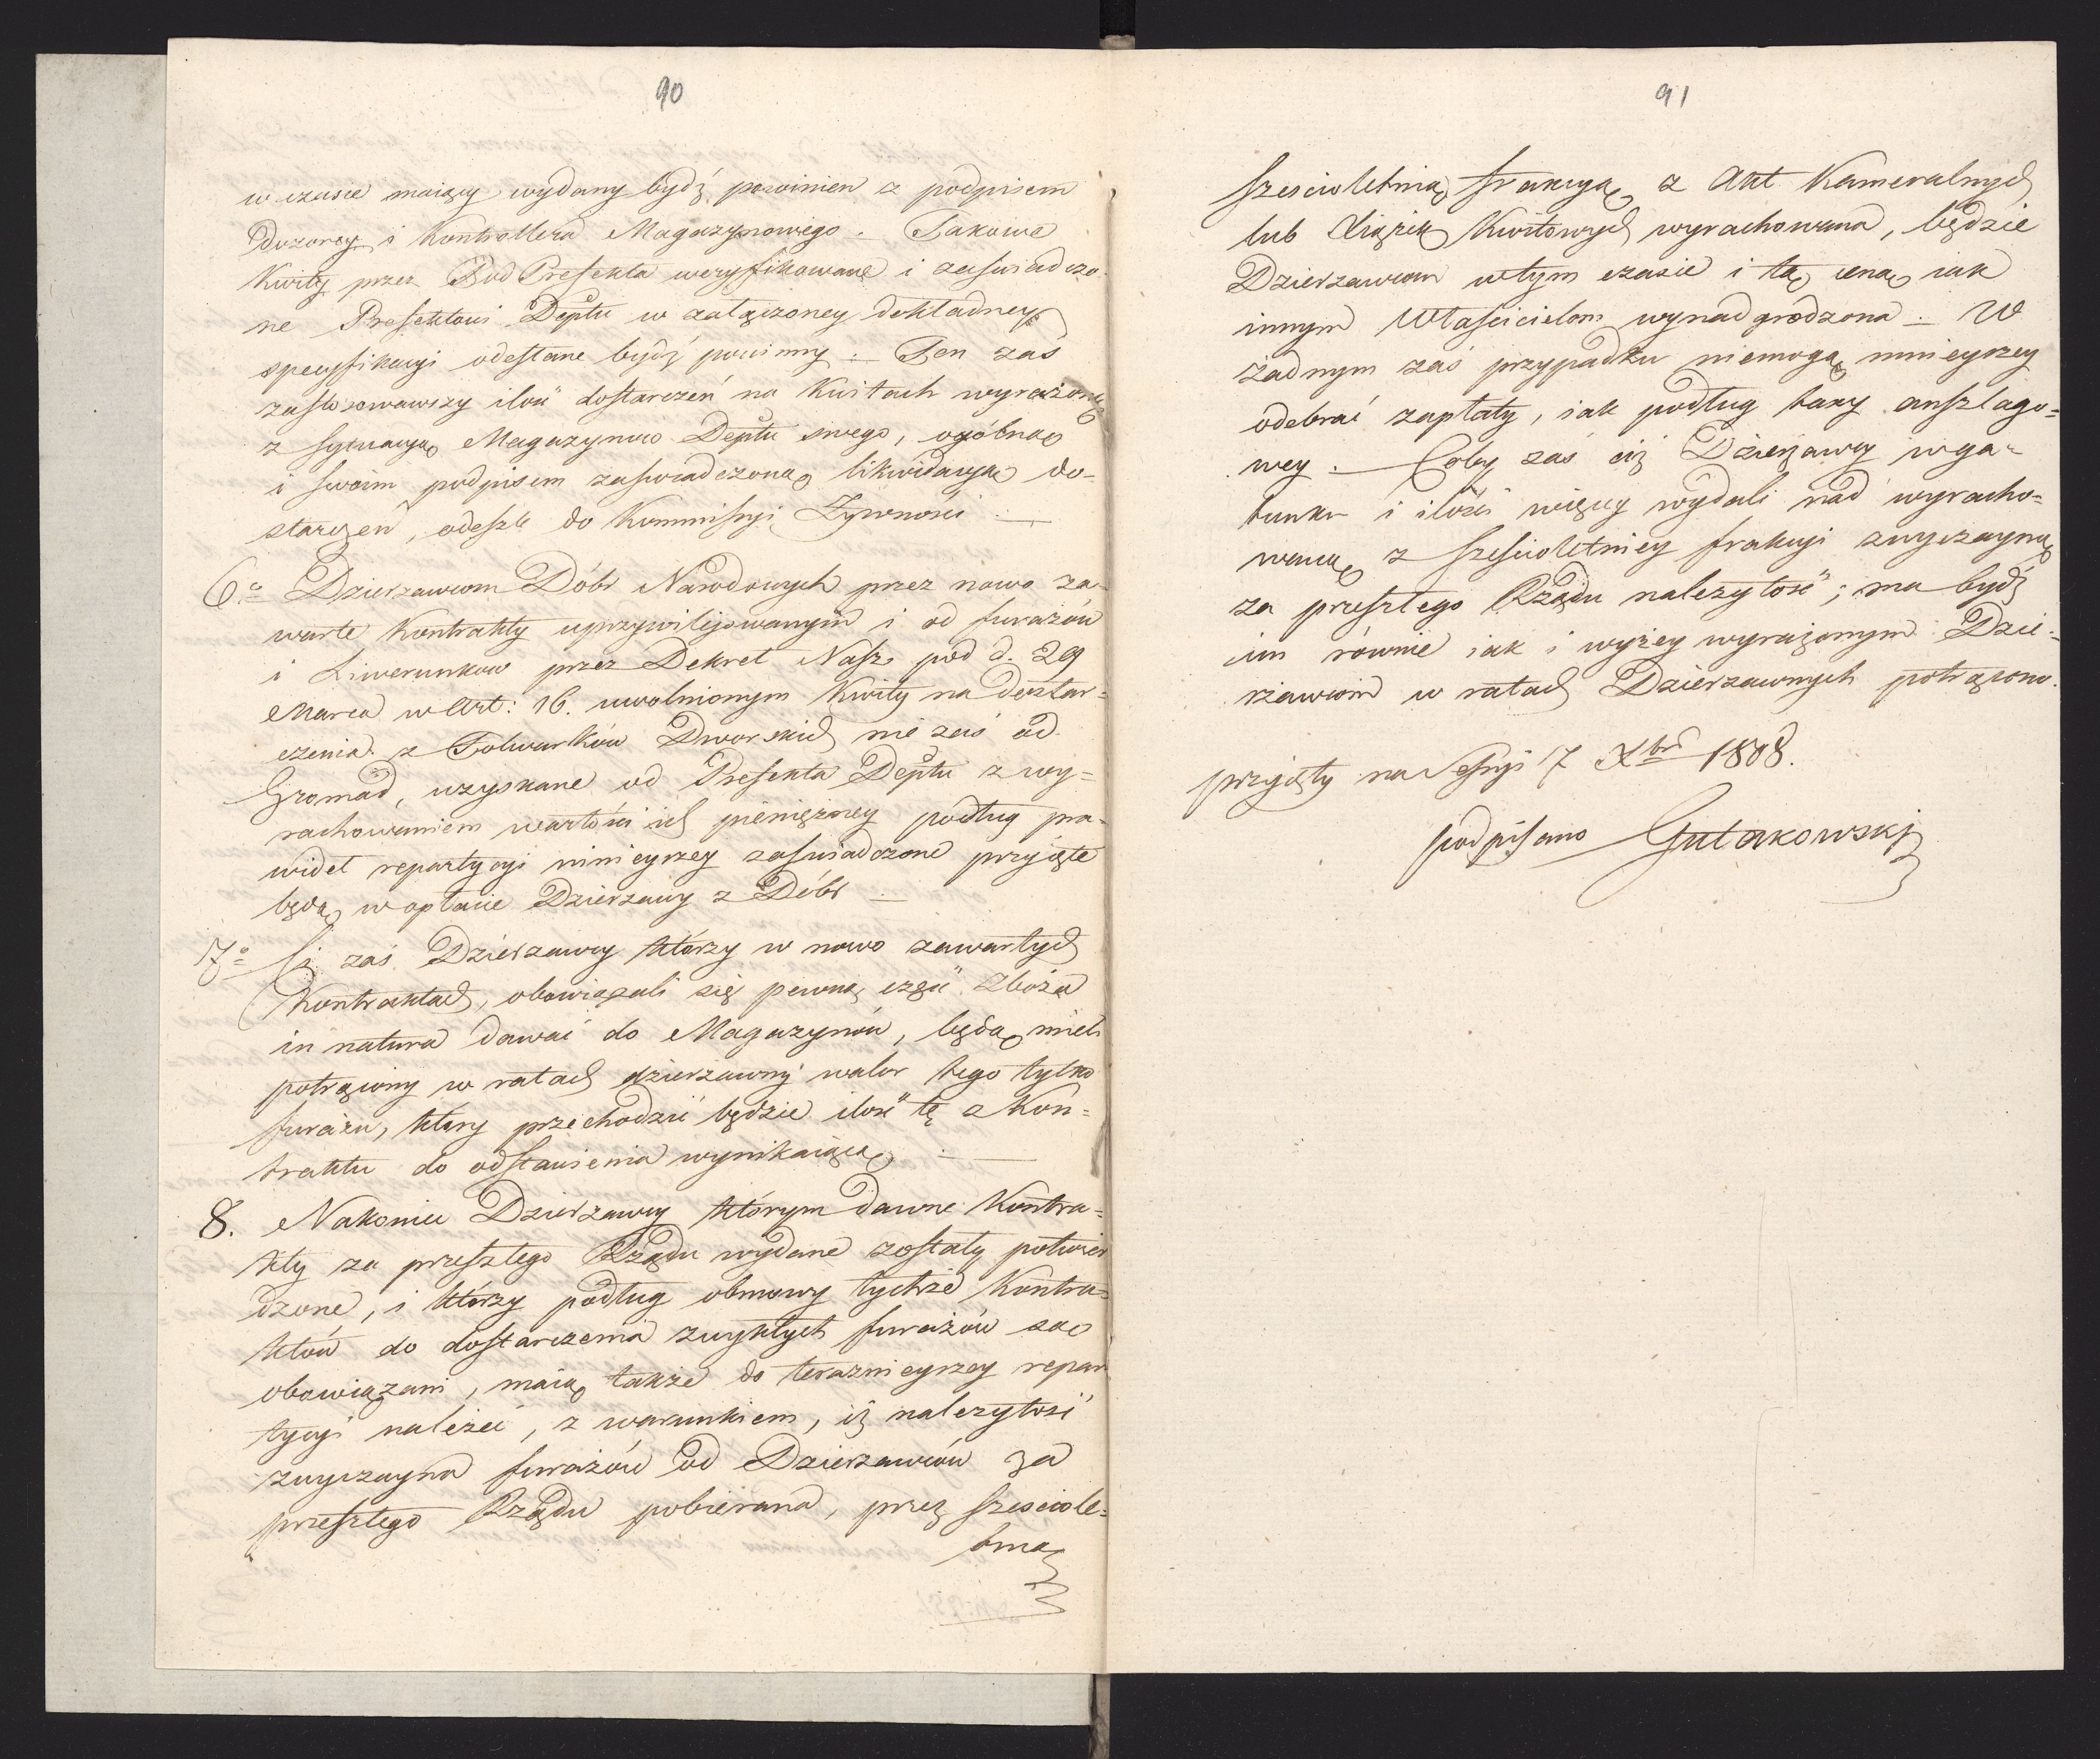 90
w czasie maiący wydany bydź powinien z podpisem
Dozorcy i Kontrollera Magazynowego. Takowe
Kwity przez Pod Prefekta weryfikowane i zaświadczo-
ne Prefektowi Deptu w załączoney dokładney
specyfikacyi odesłane bydź powinny. Ten zaś
zastosowawszy ilość dostarczeń na Kwitach wyrażoną
z sytuacyą Magazynów Deptu swego, ogólną
i swoim podpisem zaświadczoną likwidacyą do-
starczeń, odeszle do Kommissyi Żywności —
6o Dzierzawcom Dóbr Narodowych przez nowo za-
warte Kontrakty uprzywilejowanym i od furażów
i Liwerunkow przez Dekret Nasz pod d. 29
Marca w Art: 16. uwolnionym Kwity na dostar-
czenia z Folwarków Dworskich nie zaś od
Gromad, uzyskane od Prefekta Deptu z wy-
rachowaniem wartości ich pieniężney podług pra-
wideł repartycyi ninieyszey zaświadczone przyięte
będą w opłacie Dzierzawy z Dóbr —
7o Ci zaś Dzierzawcy którzy w nowo zawartych
Kontraktach, obowiązali się pewną część Zboża
in natura dawać do Magazynów, będą mieli
potrącony w ratach dzierzawny walor tego tylko
furażu, który przechodzić będzie ilość tę z Kon-
traktu do odstawienia wynikaiącą. —
8. Nakoniec Dzierzawcy którym dawne Kontra-
kty za przeszłego Rządu wydane zostały potwier
dzone, i którzy podług obmowy tychże Kontra-
któw do dostarczenia zwykłych furażów są
obowiązani, maią także do teraznieyszey repar
tycyi należeć, z warunkiem, iż należytość
zwyczayna furażów od Dzierzawców za
przeszłego Rządu pobierana, przez sześciole-
tnią
91
sześcioletnią frakcyą z Akt Kameralnych
lub Xiążek Kwitowych wyrachowana, będzie
Dzierzawcom w tym czasie i tą ceną iak
innym Właścicielom wynadgrodzona. — W
żadnym zaś przypadku niemogą mnieyszey
odebrać zapłaty, iak podług taxy anszlago-
wey. — Coby zaś ciż Dzierzawcy w ga-
tunku i ilości więcey wydali nad wyracho-
waną z sześcioletniey frakcyi zwyczayną
za przeszłego Rządu należytość; ma bydź
im równie iak i wyżey wyrażonym Dzie-
rzawcom w ratach Dzierzawnych potrącono.
przyięty na Sessyi 7 Xbra 1808.
podpisano Gutakowski